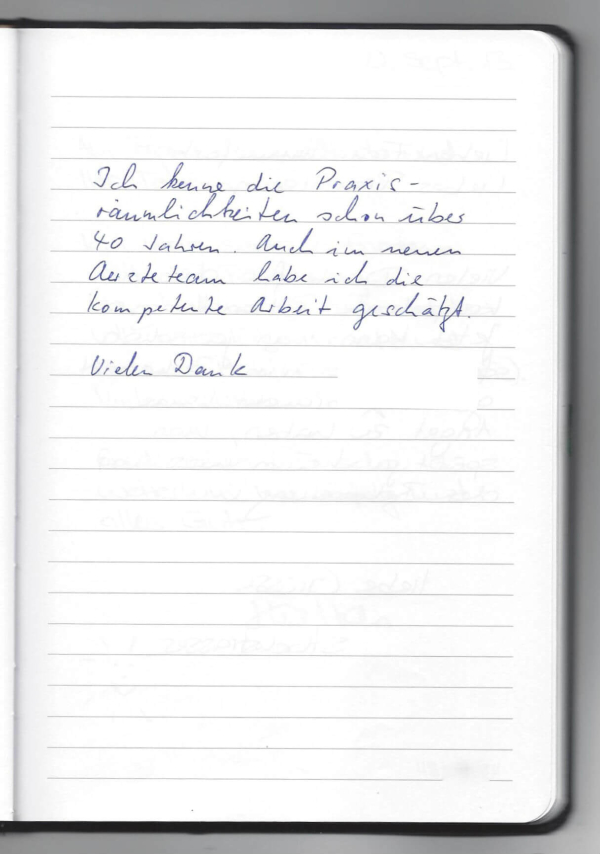 Ich kenne die Praxis-
räumlichkeiten schon über
40 Jahren. Auch im neuen
Aerzteteam habe ich die
kompetente Arbeit geschätzt.
Vielen Dank